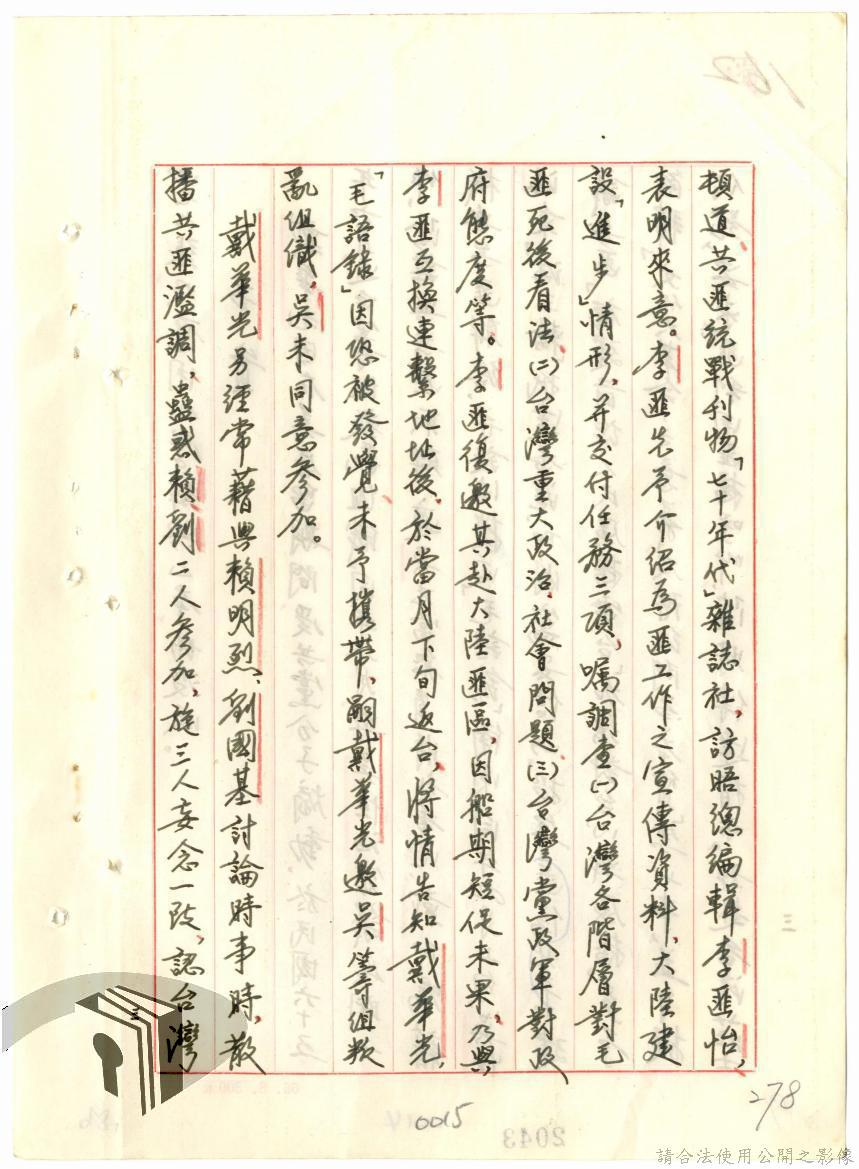 頓道共匪統戰刋物「七十年代」雜誌社，訪晤總編輯李匪怡，
表明來意。李匪先予介紹為匪工作之宣傳資料，大陸建
設「進步」情形，并交付任務三項，囑調查㈠台灣各階層對毛
匪死後看法㈡台灣重大政治、社會問題㈢台灣黨政軍對政
府態度等。李匪復邀其赴大陸匪區，因船期短促未果，乃與
李匪互換連繫地址後，於當月下旬返台，將情告知戴華光，
「毛語錄」因恐被發覺未予攜帶，嗣戴華光邀吳籌組叛
亂組織，吳未同意參加。
戴華光另經常藉與賴明烈、劉國基討論時事時，散
播共匪濫調，蠱惑賴、劉二人參加，旋三人妄念一致，認台灣
三
278
0015
2043
請合法使用公開之影像